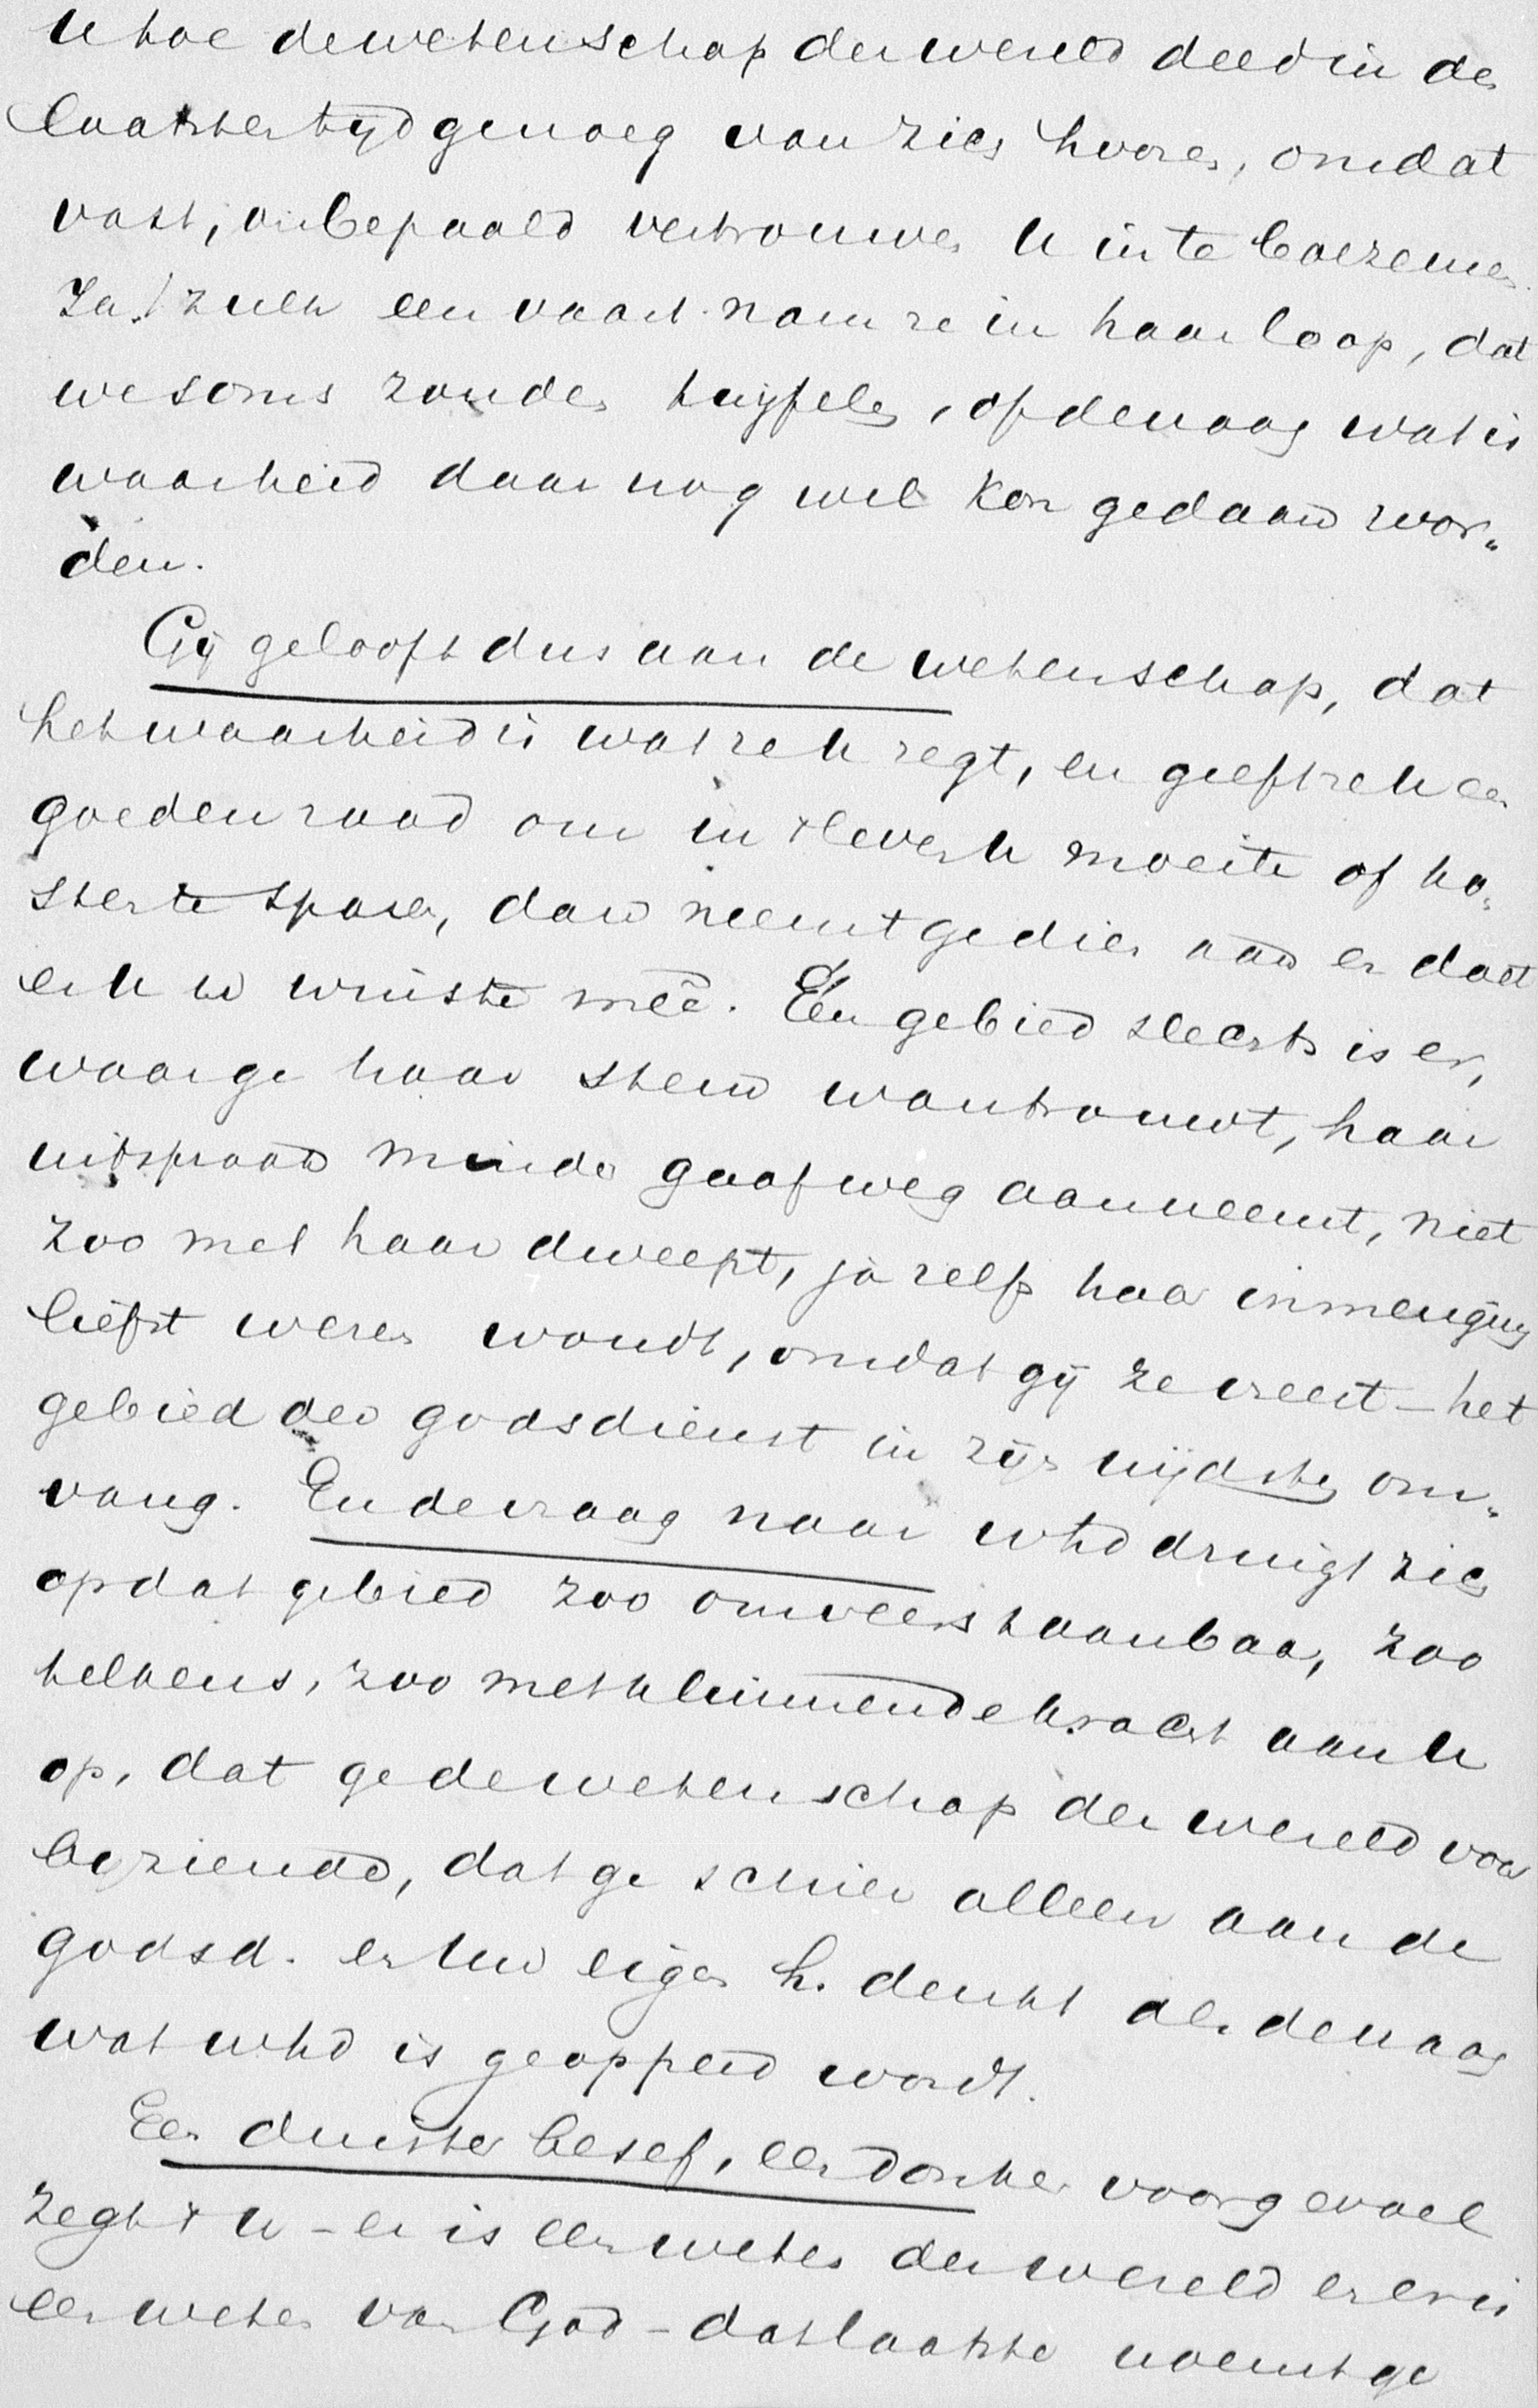 U toe de wetenschap der wereld deed in den
laatsten tijd genoeg van zich hooren, omdat
vast, onbepaald vertrouwen U in te boezemen.
Ja! zulk een vaart nam ze in haar loop, dat
we soms zonden twijfelen, of de vraag wat is
waarheid daar nog wel kon gedaan wor"
den.
Gij gelooft dus aan de wetenschap, dat
het waarheid is wat ze U zegt, en geeft ze U een
goeden raad om in 't leven U moeite of ko"
sten te sparen, dan neemt ge dien aan en doet
er U w winste meê. Één gebied slechts is er,
waar ge haar stem wantrouwt, haar
uitspraak minder gaaf weg aanneemt, niet
zoo met haar dweept, ja zelfs haar inmenging
liefst weren woudt, omdat gij ze vreest – het
gebied der godsdienst in zijn wijdsten om"
vang. En de vraag naar whd dringt zich
op dat gebied zoo onweerstaanbaar, zoo
telkens, zoo met klimmende kracht aan U
op, dat ge de wetenschap der wereld voor
bijziende, dat ge schier alleen aan de
godsd. en Uw eigen h. denkt als de vraag
wat whd is geopperd wordt.
Een duister besef, een donker voorgevoel
zegt 't U – er is een weten der wereld en er is
een weten van God – dat laatste noemt ge